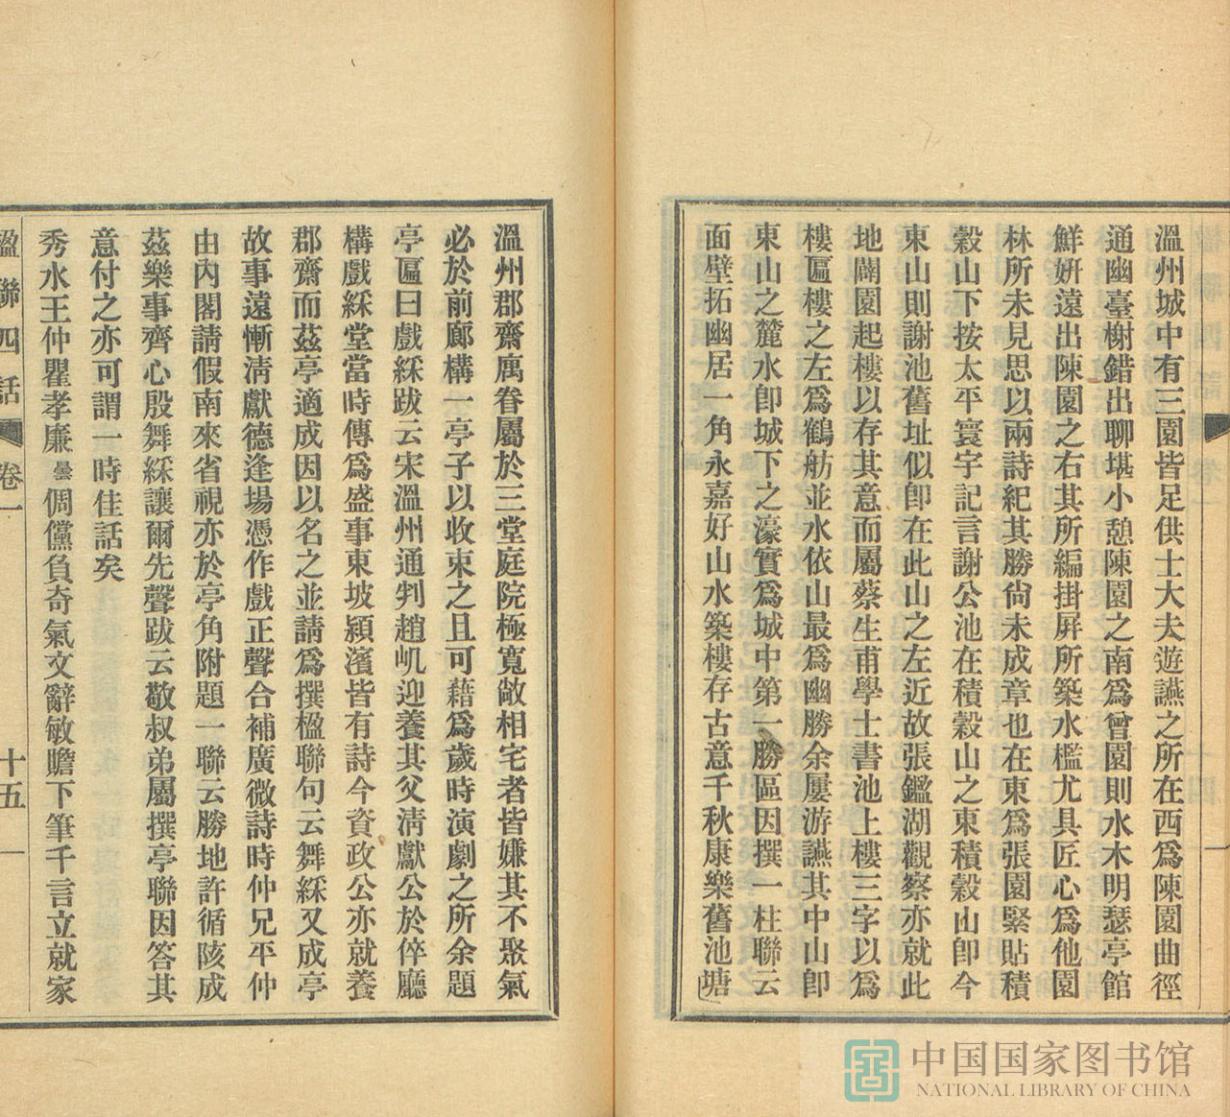 溫州城中有三園皆足供士大夫遊讌之所在西爲陳園曲徑
通幽臺榭錯出聊堪小憩陳園之南爲曾園則水木明瑟亭館
鮮妍遠出陳園之右其所編掛屛所築水檻尤具匠心爲他園
林所未見思以兩詩紀其勝尙未成章也在東爲張園緊貼積
穀山下按太平寰宇記言謝公池在積穀山之東積穀山卽今
東山則謝池舊址似卽在此山之左近故張鑑湖觀察亦就此
地闢園起樓以存其意而屬蔡生甫學士書池上樓三字以爲
樓匾樓之左爲鶴舫並水依山最爲幽勝余屢游讌其中山卽
東山之麓水卽城下之濠實爲城中第一勝區因撰一柱聯云
面壁拓幽居一角永嘉好山水築樓存古意千秋康樂舊池塘
溫州郡齋厲眷屬於三堂庭院極寬敞相宅者皆嫌其不聚氣
必於前廊構一亭子以收束之且可藉爲歲時演劇之所余題
亭匾曰戲綵跋云宋溫州通判趙㞦迎養其父淸獻公於倅廳
構戲綵堂當時傳爲盛事東坡潁濱皆有詩今資政公亦就養
郡齋而茲亭適成因以名之並請爲撰楹聯句云舞綵又成亭
故事遠慚淸獻德逢場憑作戲正聲合補廣微詩時仲兄平仲
由內閣請假南來省視亦於亭角附題一聯云勝地許循陔成
茲樂事齊心殷舞綵讓爾先聲跋云敬叔弟屬撰亭聯因答其
意付之亦可謂一時佳話矣
秀水王仲瞿孝廉曇倜儻負奇氣文辭敏贍下筆千言立就家
楹聯四話 卷一 十五
中国国家图书馆
NATIONAL LIBRARY OF CHINA